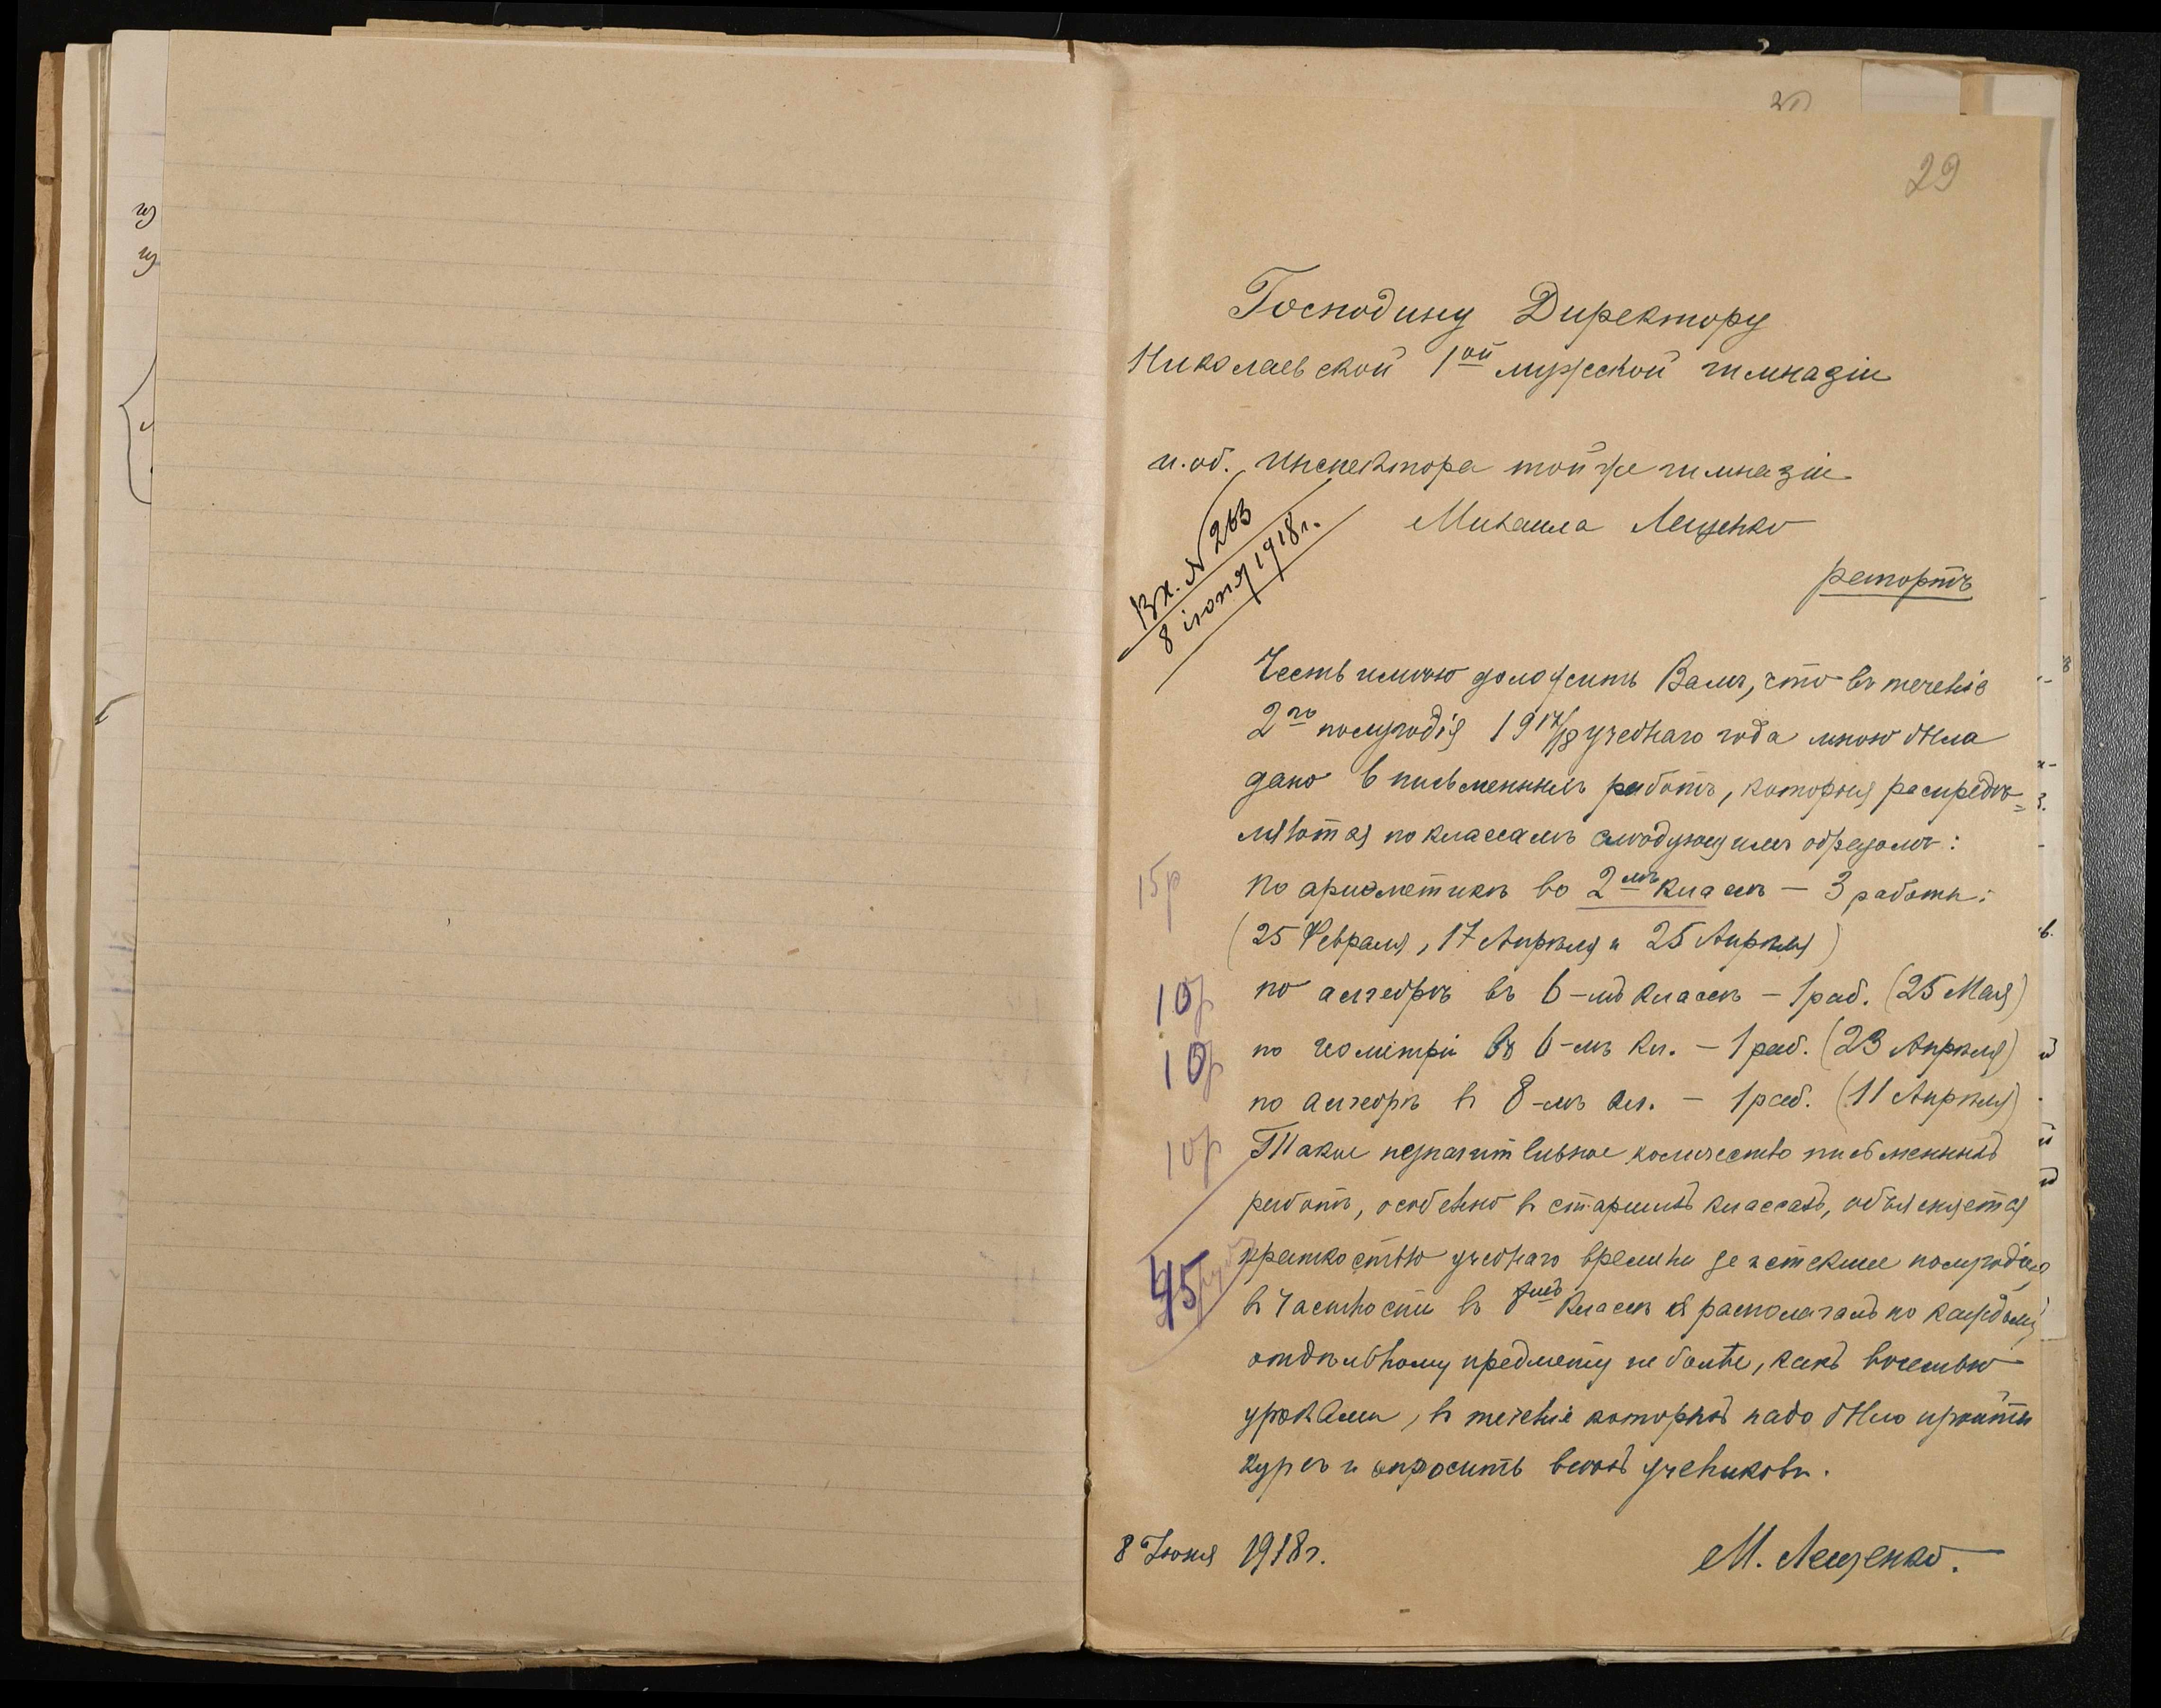 29
Господину Директору
Николаевской 1ой мужской гимназіи
и. об. Инспектора той же гимназіи
Михаила Лещенко
рапортъ
Вх. № 263
8 іюня 1918 г.
Честь имѣю доложить Вамъ, что въ теченіе
2го полугодія 1917/18 учебнаго года мною была
дано 6 письменныхъ работъ, которыя распредѣ=
ляются по классамъ слѣдующимъ образомъ:
15р
по ариѳметикѣ во 2мъ классѣ — 3 работы:
(25 Февраля, 17 Апрѣля и 25 Апрѣля)
10р
по алгебрѣ въ 6-мъ классѣ — 1 раб. (25 Мая)
10р
по геометріи въ 6-мъ кл. — 1 раб. (23 Апрѣля)
по алгебрѣ въ 8-мъ кл. — 1 раб. (11 Апрѣля)
10р
Такое незначительное количество письменныхъ
работъ, особенно въ старшихъ классахъ, объясняется
45
краткостью учебнаго времени за истекшее полугодіе,
въ частности въ классѣ я располагалъ по каждому
отдѣльному предмету не болѣе, какъ восемью
уроками, въ теченіе которыхъ надо было пройти
курсъ и спросить всѣхъ учениковъ.
8 Іюня 1918 г.
М. Лещенко.